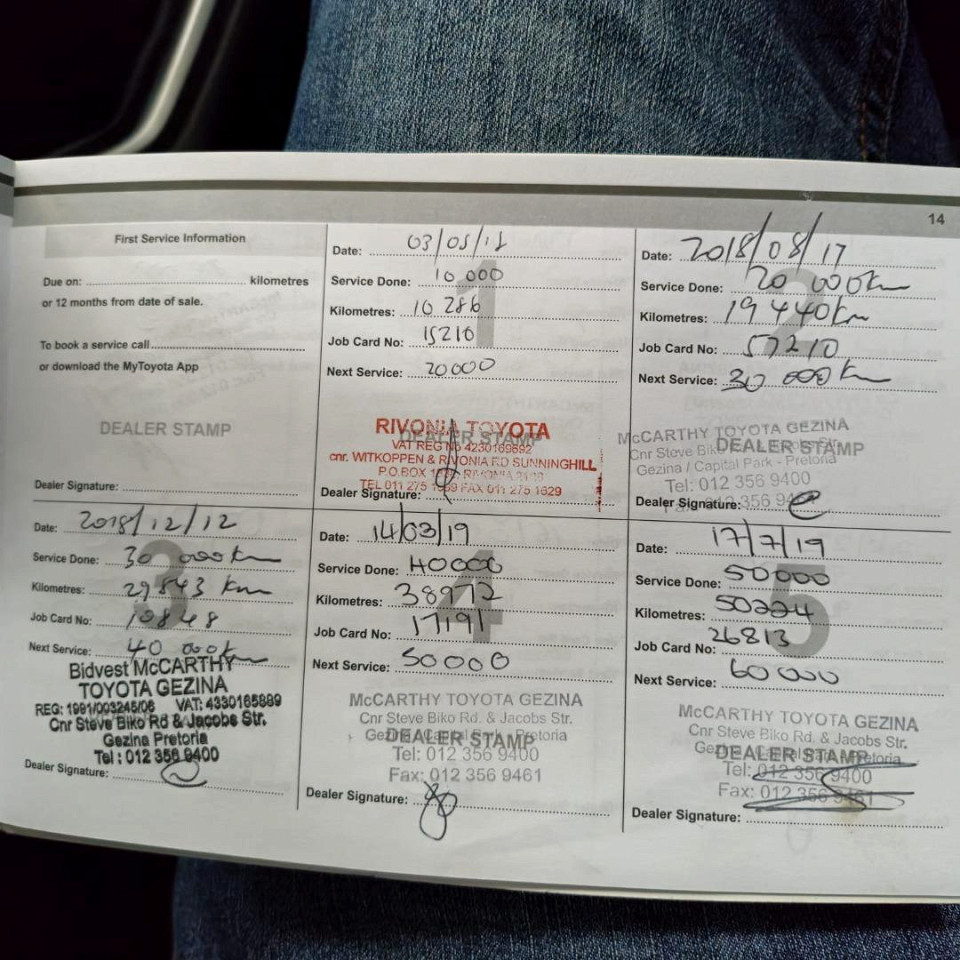 14
First Service Information
Due on: kilometres
or 12 months from date of sale.
To book a service call
or download the MyToyota App
DEALER STAMP
Dealer Signature:
1
Date: 03/05/18
Service Done: 10 000
Kilometres: 10 286
Job Card No: 15210
Next Service: 20000
RIVONIA TOYOTA
DEALER STAMP
VAT REG No 4230169892
cnr. WITKOPPEN & RIVONIA RD SUNNINGHILL
P.O BOX RIVONIA
TEL 011 275 FAX 011 275 1629
Dealer Signature:
2
Date: 2018/08/17
Service Done: 20 000km
Kilometres: 19 440km
Job Card No: 57210
Next Service: 30 000km
McCARTHY TOYOTA GEZINA
DEALER STAMP
Cnr Steve Biko Str.
Gezina / Capital Park - Pretoria
Tel: 012 356 9400
Dealer Signature:
3
Date: 2018/12/12
Service Done: 30 000km
Kilometres: 29 843 km
Job Card No: 10848
Next Service: 40 000km
Bidvest McCARTHY
TOYOTA GEZINA
REG: 1991/003245/06 VAT: 4330165889
Cnr Steve Biko Rd & Jacobs Str.
Gezina Pretoria
Tel : 012 356 9400
Dealer Signature:
4
Date: 14/03/19
Service Done: 40000
Kilometres: 38972
Job Card No: 17191
Next Service: 50000
McCARTHY TOYOTA GEZINA
Cnr Steve Biko Rd. & Jacobs Str.
Pretoria
DEALER STAMP
Tel: 012 356 9400
Fax: 012 356 9461
Dealer Signature:
5
Date: 17/7/19
Service Done: 50000
Kilometres: 50224
Job Card No: 26813
Next Service: 60 000
McCARTHY TOYOTA GEZINA
Cnr Steve Biko Rd. & Jacobs Str.
Pretoria
DEALER STAMP
Tel: 012 356 9400
Fax: 012 356 9461
Dealer Signature: